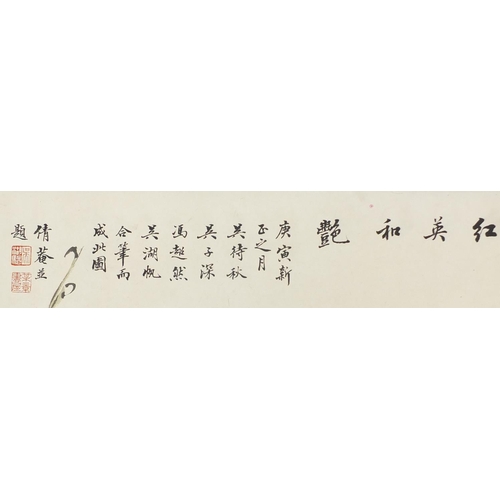 红英和艷
庚寅新
正之月
吴待秋
吴子深
馮超然
吴湖帆
合筆而
成此圖
倩菴並
題